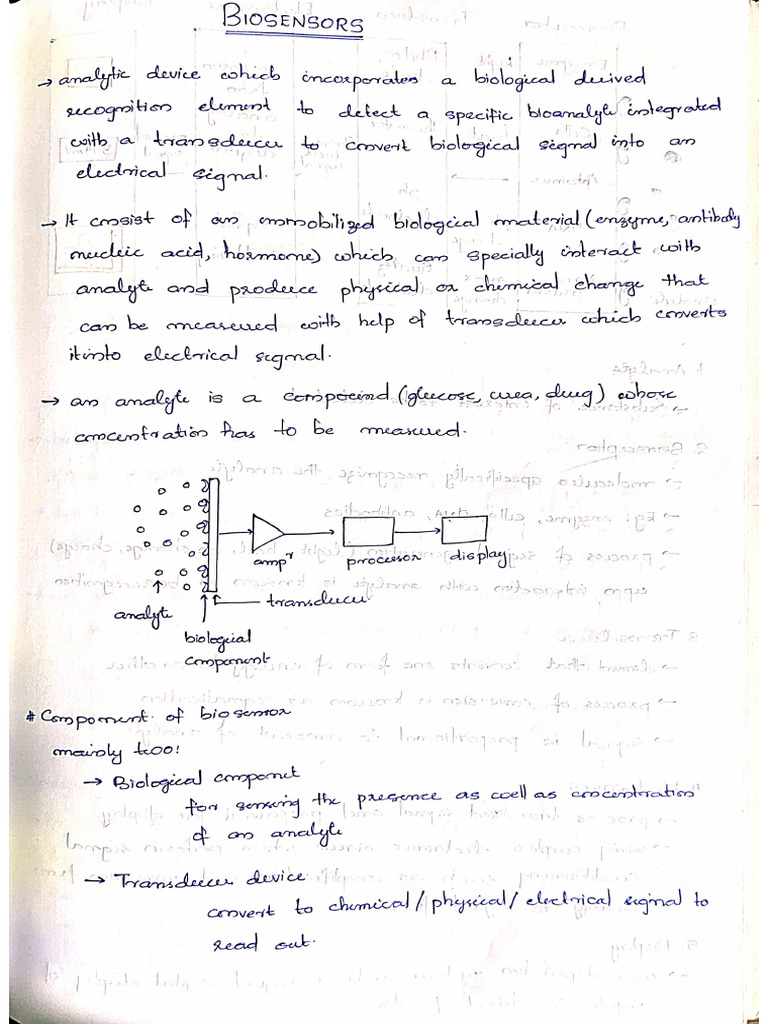 BIOSENSORS
→ analytic device which incorporates a biological derived
recognition element to detect a specific bioanalyte integrated
with a transducer to convert biological signal into an
electrical signal.
→ It consist of an immobilized biological material (enzyme, antibody
nucleic acid, hormone) which can specially interact with
analyte and produce physical or chemical change that
can be measured with help of transducer which converts
it into electrical signal.
→ an analyte is a compound (glucose, urea, drug) whose
concentration has to be measured.
ampr
processor
display
analyte
transducer
biological
component
# Component of biosensor
mainly two:
→ Biological componet
for sensing the presence as well as concentration
of an analyte
→ Transducer device
convert to chemical/physical/electrical signal to
read out.